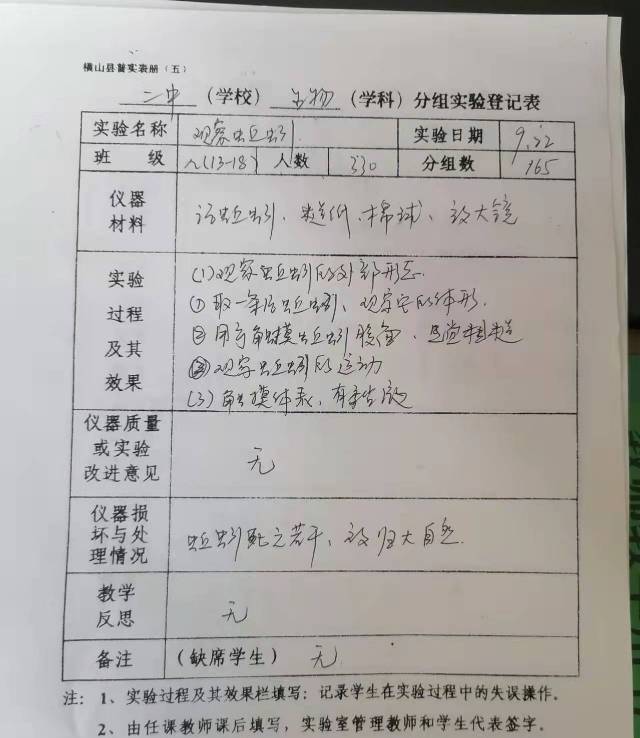 横山县普实表册（五）
二中（学校）生物（学科）分组实验登记表
实验名称 观察蚯蚓 实验日期 9.22
班 级 八(13-18) 人数 330 分组数 165
仪器材料 活蚯蚓、糙纸、棉球、放大镜
实验过程及其效果 (1)观察蚯蚓的外部形态
① 取一条活蚯蚓、观察它的体形.
② 用手触摸蚯蚓腹面、感觉粗糙
③ 观察蚯蚓的运动
(3) 触摸体表、有
仪器质量或实验改进意见 无
仪器损坏与处理情况 蚯蚓死亡若干、放归大自然.
教学反思 无
备注 (缺席学生) 无.
注：1、实验过程及其效果栏填写：记录学生在实验过程中的失误操作。
2、由任课教师课后填写，实验室管理教师和学生代表签字。